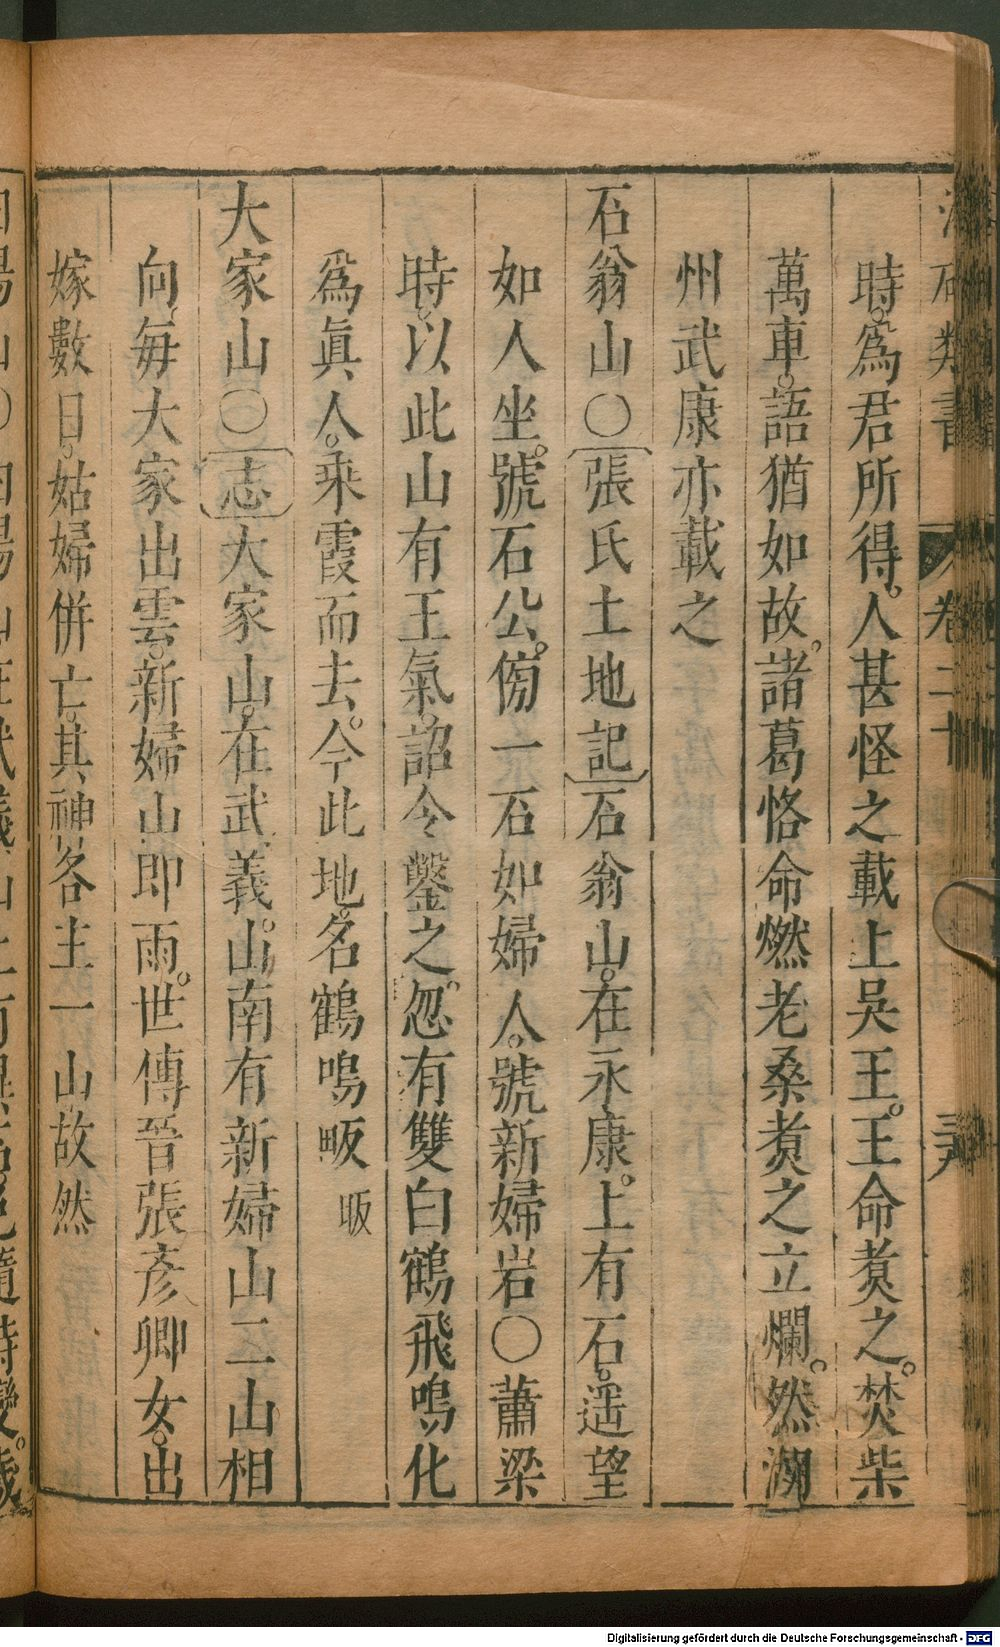 類書
卷二十
時為君所得人甚怪之載上吳王王命煑之焚柴
萬車語猶如故諸葛恪命燃老桑煑之立爛然湖
州武康亦載之
石翁山○張氏土地記石翁山在永康上有石遥望
如人坐號石公傍一石如婦人號新婦岩○蕭梁
時以此山有王氣詔令鑿之忽有雙白鶴飛鳴化
爲眞人乘霞而去今此地名鶴鳴畈 畈
大家山○志大家山在武義山南有新婦山二山相
向每大家出雲新婦山即雨世傳晉張彥卿女出
嫁數日姑婦併亡其神各主一山故然
Digitalisierung gefördert durch die Deutsche Forschungsgemeinschaft - DFG